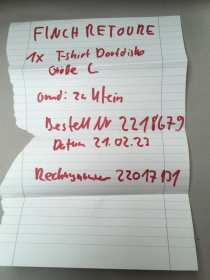 FINCH RETOURE
1x T-shirt Dorfdisko
Größe L
Grund: zu klein
Bestell Nr 2218679
Datum 21.02.23
Rechnungsnummer 22017131